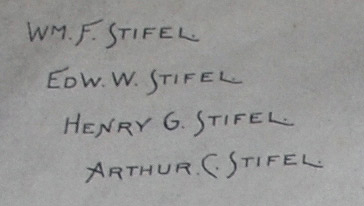 WM. F. STIFEL.
EDW. W. STIFEL.
HENRY G. STIFEL.
ARTHUR. C. STIFEL.